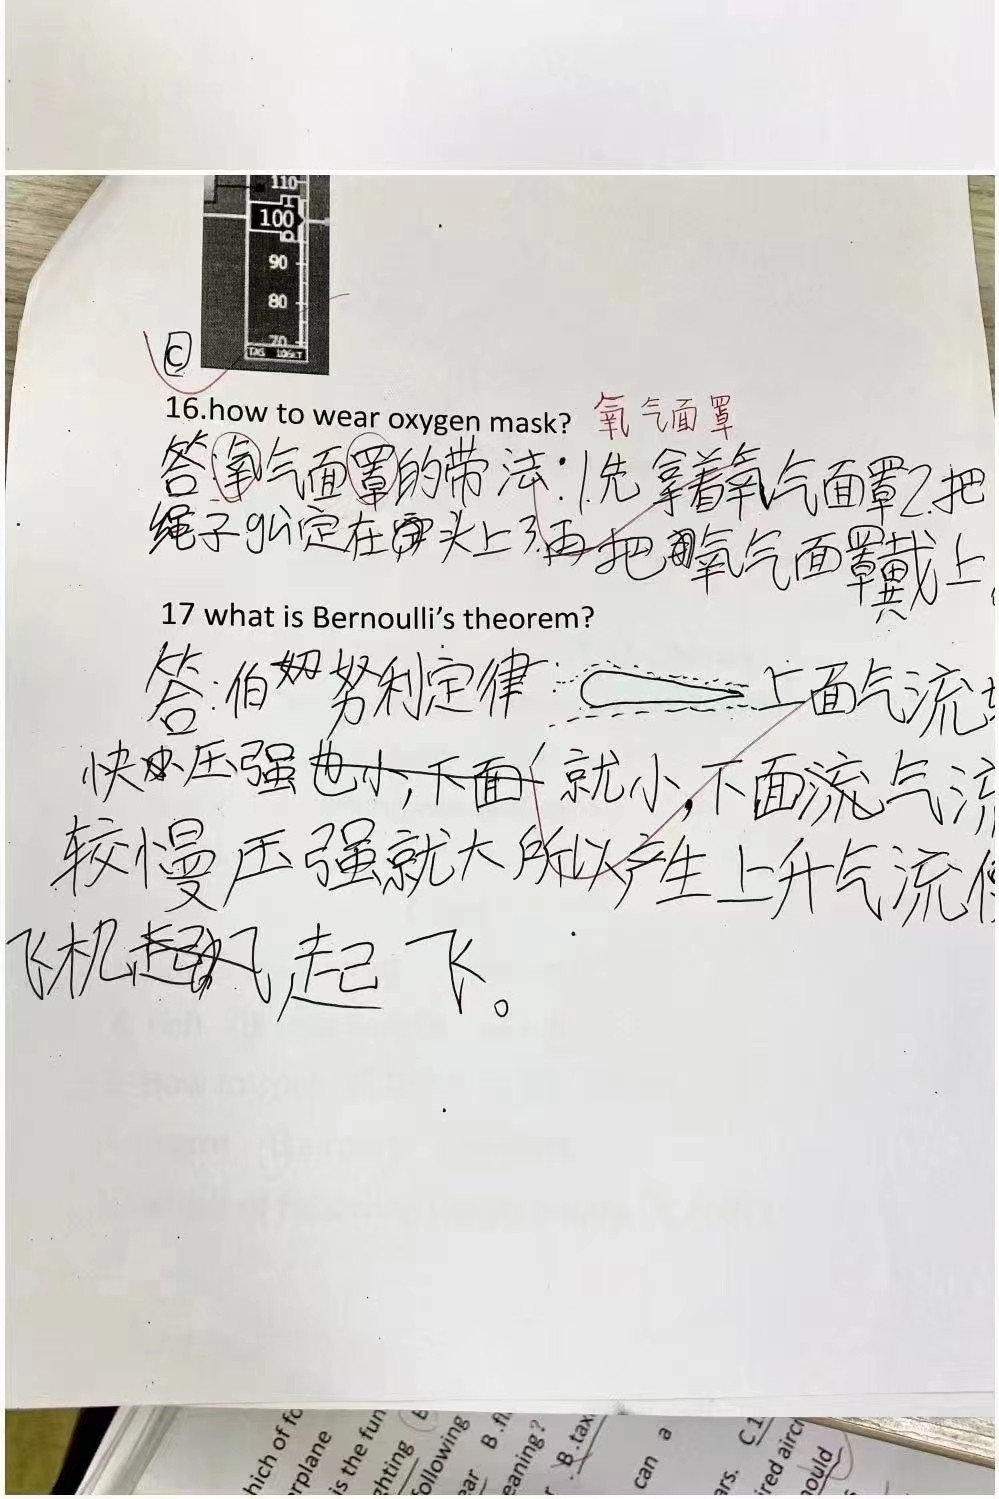 110
100
90
80
70
TAS 106KT
C
16.how to wear oxygen mask? 氧气面罩
答:氧气面罩的带法:1.先拿着氧气面罩2.把
绳子gu定在头上3.再把氧气面罩戴上
17 what is Bernoulli's theorem?
答:伯努利定律: 上面气流
快压强也小,下面就小,下面流气流
较慢压强就大所以产生上升气流使
飞机起飞。
hich of fo
rplane
is the fun
ghting
ollowing
ear B.fl
eaning?
B.tax
can a
ars. C.1
ired aircr
hould